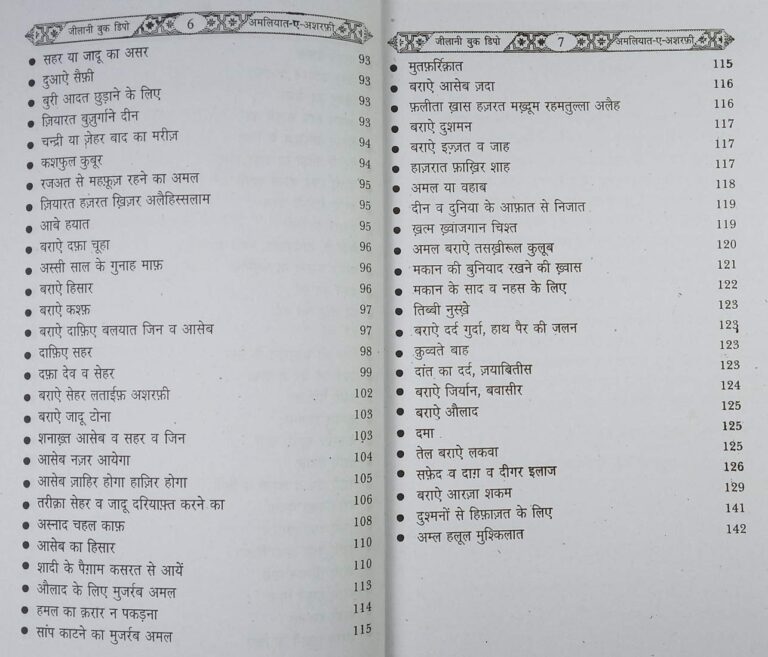 जीलानी बुक डिपो 6 अमलियात-ए-अशरफ़ी
सहर या जादू का असर 93
दुआऐ सैफ़ी 93
बुरी आदत छुड़ाने के लिए 93
ज़ियारत बुज़ुर्गाने दीन 93
चन्द्री या ज़ेहर बाद का मरीज़ 94
कशफुल कुबूर 94
रजअत से महफ़ूज़ रहने का अमल 95
ज़ियारत हज़रत ख़िज़र अलैहिस्सलाम 95
आबे हयात 95
बराऐ दफ़ा चूहा 96
अस्सी साल के गुनाह माफ़ 96
बराऐ हिसार 96
बराऐ कश्फ़ 97
बराऐ दाफ़िए बलयात जिन व आसेब 97
दाफ़िए सहर 98
दफ़ा देव व सेहर 99
बराऐ सेहर लताईफ़ अशरफ़ी 102
बराऐ जादू टोना 103
शनाख़्त आसेब व सहर व जिन 103
आसेब नज़र आयेगा 104
आसेब ज़ाहिर होगा हाज़िर होगा 105
तरीक़ा सेहर व जादू दरियाफ़्त करने का 106
अस्नाद चहल काफ़ 108
आसेब का हिसार 110
शादी के पैग़ाम कसरत से आयें 110
औलाद के लिए मुजर्रब अमल 113
हमल का क़रार न पकड़ना 114
सांप काटने का मुजर्रब अमल 115
जीलानी बुक डिपो 7 अमलियात-ए-अशरफ़ी
मुतफ़र्रिक़ात 115
बराऐ आसेब ज़दा 116
फ़लीता ख़ास हज़रत मख़्दूम रहमतुल्ला अलैह 116
बराऐ दुशमन 117
बराऐ इज़्ज़त व जाह 117
हाज़रात फ़ाख़िर शाह 117
अमल या वहाब 118
दीन व दुनिया के आफ़ात से निजात 119
ख़त्म ख़्वाजगान चिश्त 119
अमल बराऐ तसख़ीरूल कुलूब 120
मकान की बुनियाद रखने की ख़्वास 121
मकान के साद व नहस के लिए 122
तिब्बी नुस्ख़े 123
बराऐ दर्द गुर्दा, हाथ पैर की जलन 123
कुव्वते बाह 123
दांत का दर्द, ज़याबितीस 123
बराऐ जिर्यान, बवासीर 124
बराऐ औलाद 125
दमा 125
तेल बराऐ लकवा 125
सफ़ेद व दाग़ व दीगर इलाज 126
बराऐ आरज़ा शकम 129
दुश्मनों से हिफ़ाज़त के लिए 141
अम्ल हलूल मुश्किलात 142